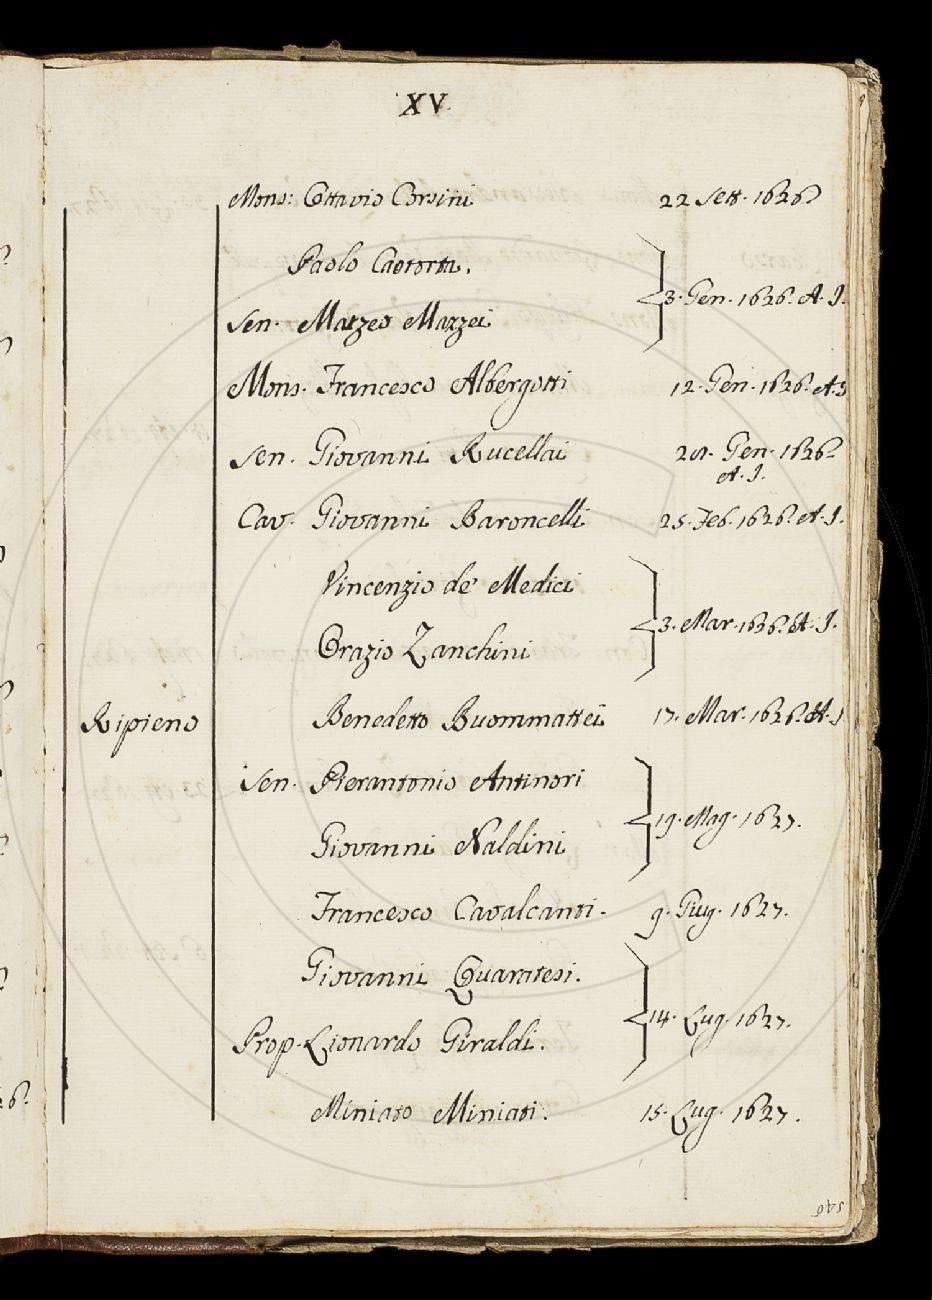 XV.
Mons: Ottavio Corsini 22 Sett. 1626
Paolo
Sen. Matzeo Mazzei 3. Gen. 1626. A. I.
Mons. Francesco Albergotti 12. Gen. 1626. A. I
Sen. Giovanni Rucellai Gen. 1626.
A. I.
Cav. Giovanni Baroncelli 25. Feb. 1626. A. I.
Vincenzio de' Medici
Orazio Zanchini 3. Mar. 1626. A. I.
Ripieno Benedetto Buommattei 17. Mar. 1626. A. I
Sen. Pierantonio Antinori
Giovanni Naldini 19. Mag. 1627.
Francesco Cavalcanti. 9. Giug. 1627.
Giovanni Quaratesi.
Prop. Lionardo Giraldi. 14. Lug. 1627.
Miniato Miniati. 15. Lug. 1627.